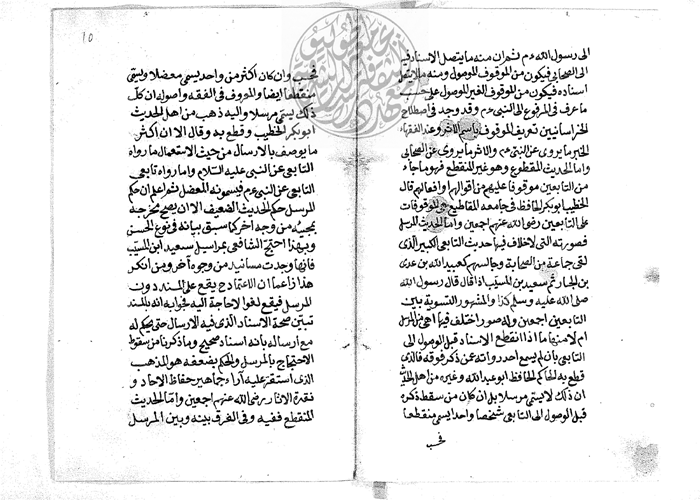 الى رسول الله عم ثم ان منه ما يتصل الاسناد فيه
الى الصحابى فيكون من الموقوف الموصول ومنه ما لا يتصل
اسناده فيكون من الموقوف الغير الموصول على حسب
ما عرف فى المرفوع الى النبى عم وقد وجد فى اصطلاح
الخراسانيين تعريف الموقوف باسم الاثر وعند الفقهاء
الخبر ما يروى عن النبى عم والاثر ما يروى عن الصحابى
واما الحديث المقطوع وهو غير المنقطع فهو ما جاء
من التابعين موقوفا عليهم من اقوالهم وافعالهم قال
الخطيب ابو بكر الحافظ فى جامعه المقاطيع هى الموقوفات
على التابعين رضى الله عنهم اجمعين واما الحديث المرسل
فصورته التى لا خلاف فيها حديث التابعى الكبير الذى
لقى جماعة من الصحابة وجالسهم كعبيد الله بن عدى
بن الخيار ثم سعيد بن المسيب اذا قال قال رسول الله
صلى الله عليه وسلم كذا والمشهور التسوية بين
التابعين اجمعين وله صور اختلف فيها اهى من المرسل
ام لا منها ما اذا انقطع الاسناد قبل الوصول الى
التابعى بان لم يسمع احد رواته عن ذكر فوقه فالذى
قطع به الحاكم الحافظ ابو عبد الله وغيره من اهل الحديث
ان ذلك لا يسمى مرسلا بل ان كان من سقط ذكره
قبل الوصول الى التابعى شخصا واحدا يسمى منقطعا
فحسب
10
فحسب وان كان اكثر من واحد يسمى معضلا ويسمى
منقطعا ايضا والمعروف فى الفقه واصوله ان كل
ذلك يسمى مرسلا واليه ذهب من اهل الحديث
ابو بكر الخطيب وقطع به وقال الا ان اكثر
ما يوصف بالارسال من حيث الاستعمال ما رواه
التابعى عن النبى عليه السلام واما رواه تابعى
التابعى عن النبى عم فيسمونه المعضل ثم اعلم ان حكم
المرسل حكم الحديث الضعيف الا ان يصح مخرجه
بمجيئه من وجه آخر كما سبق بيانه فى نوع الحسن
وبهذا احتج الشافعى بمراسيل سعيد ابن المسيب
فانها وجدت مسانيد من وجوه آخر ومن انكر
هذا زاعما ان الاعتماد ح يقع على المسند دون
المرسل فيقع لغوا لا حاجة اليه فجوابه انه بالمسند
تبين صحة الاسناد الذى فيه الارسال حتى يحكم له
مع ارساله بانه اسناد صحيح وما ذكرنا من سقوط
الاحتجاج بالمرسل والحكم بضعفه هو المذهب
الذى استقر عليه آراء جماهير حفاظ الاحاد و
نقدة الاثار رضى الله عنهم اجمعين واما الحديث
المنقطع ففيه وفى الفرق بينه وبين المرسل